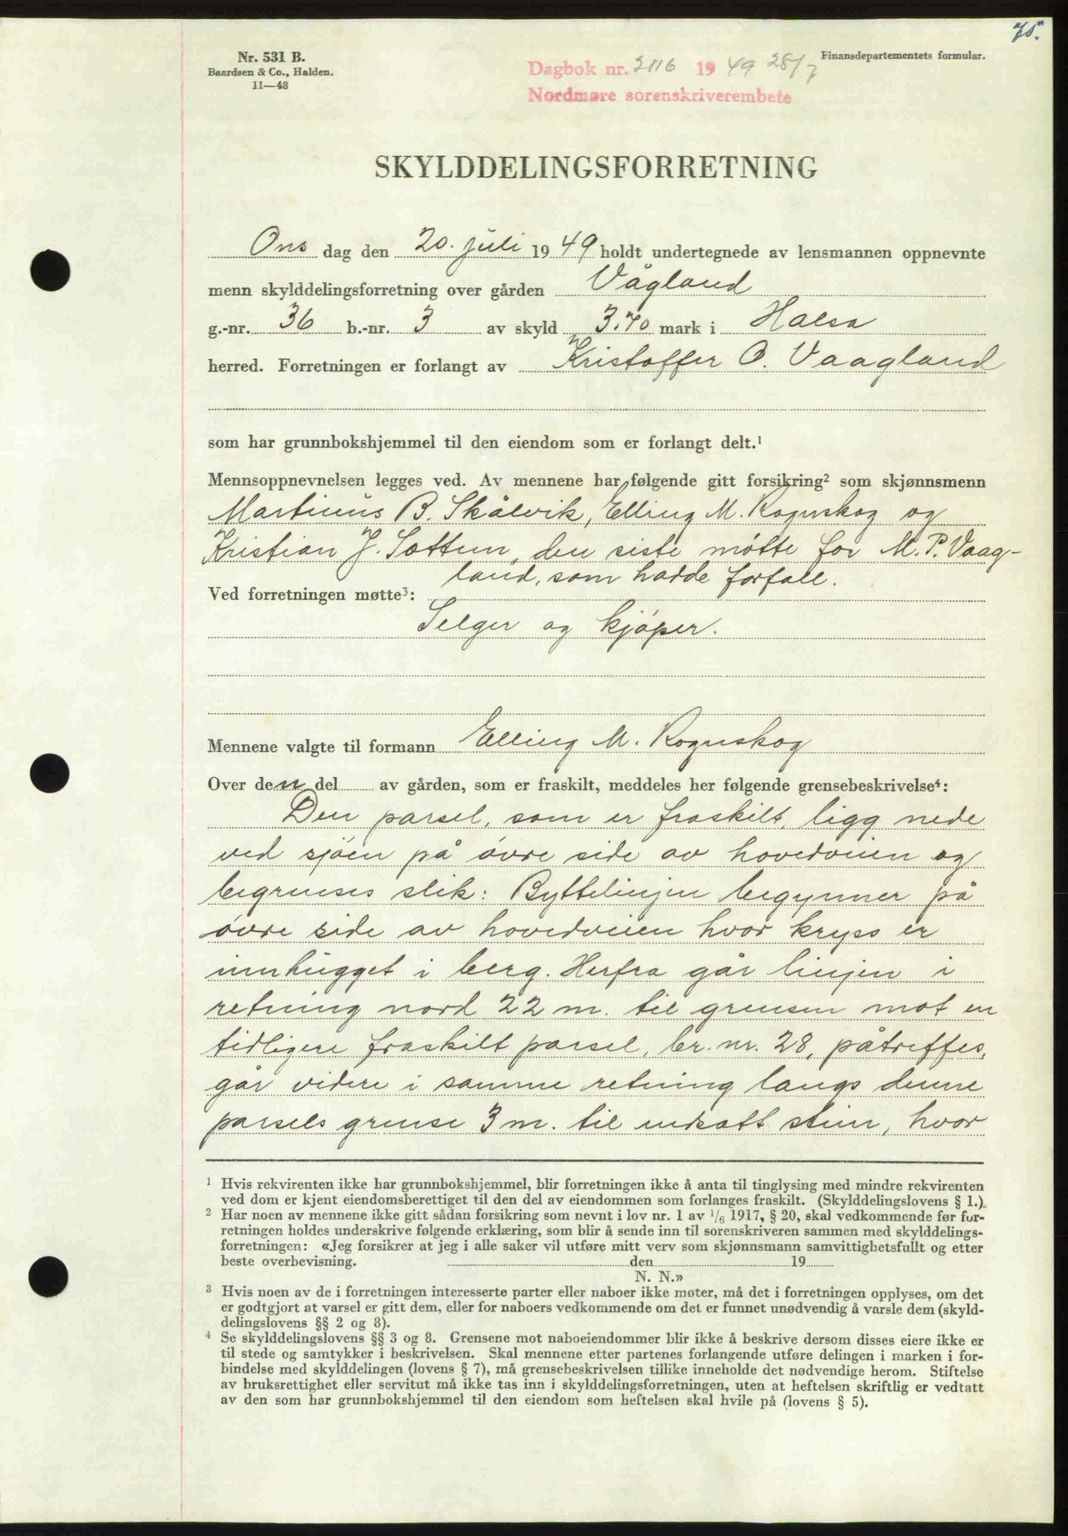 75.
Nr. 531 B.
Baardsen & Co., Halden.
11—48
Dagbok nr. 2116 1949 25/7
Nordmøre sorenskriverembete
Finansdepartementets formular.
SKYLDDELINGSFORRETNING
Ons dag den 20. juli 1949 holdt undertegnede av lensmannen oppnevnte
menn skylddelingsforretning over gården Vågland
g.-nr. 36 b.-nr. 3 av skyld 3.70 mark i Halsa
herred. Forretningen er forlangt av Kristoffer O. Vaagland
som har grunnbokshjemmel til den eiendom som er forlangt delt.¹
Mennsoppnevnelsen legges ved. Av mennene har følgende gitt forsikring² som skjønnsmenn
Martinus B. Skålvik, Elling M. Rognskog og
Kristian J. Sættem, den siste møtte for M. P. Vaag-
land, som hadde forfall.
Ved forretningen møtte³:
Selger og kjøper.
Mennene valgte til formann Elling M. Rognskog
Over den del av gården, som er fraskilt, meddeles her følgende grensebeskrivelse⁴:
Den parsel, som er fraskilt, ligg nede
ved sjøen på øvre side av hovedveien og
begrenses slik: Byttelinjen begynner på
øvre side av hovedveien hvor kryss er
innhugget i berg. Herfra går linjen i
retning nord 22 m. til grensen mot en
tidligere fraskilt parsel, br. nr. 28, påtreffes,
går videre i samme retning langs denne
parsels grense 3 m. til nedsatt stein, hvor
¹ Hvis rekvirenten ikke har grunnbokshjemmel, blir forretningen ikke å anta til tinglysing med mindre rekvirenten
ved dom er kjent eiendomsberettiget til den del av eiendommen som forlanges fraskilt. (Skylddelingslovens § 1.)
² Har noen av mennene ikke gitt sådan forsikring som nevnt i lov nr. 1 av 1/6 1917, § 20, skal vedkommende før for-
retningen holdes underskrive følgende erklæring, som blir å sende inn til sorenskriveren sammen med skylddelings-
forretningen: «Jeg forsikrer at jeg i alle saker vil utføre mitt verv som skjønnsmann samvittighetsfullt og etter
beste overbevisning. den 19
N. N.»
³ Hvis noen av de i forretningen interesserte parter eller naboer ikke møter, må det i forretningen opplyses, om det
er godtgjort at varsel er gitt dem, eller for naboers vedkommende om det er funnet unødvendig å varsle dem (skyld-
delingslovens §§ 2 og 8).
⁴ Se skylddelingslovens §§ 3 og 8. Grensene mot naboeiendommer blir ikke å beskrive dersom disses eiere ikke er
til stede og samtykker i beskrivelsen. Skal mennene etter partenes forlangende utføre delingen i marken i for-
bindelse med skylddelingen (lovens § 7), må grensebeskrivelsen tillike inneholde det nødvendige herom. Stiftelse
av bruksrettighet eller servitut må ikke tas inn i skylddelingsforretningen, uten at heftelsen skriftlig er vedtatt
av den som har grunnbokshjemmel til den eiendom som heftelsen skal hvile på (lovens § 5).